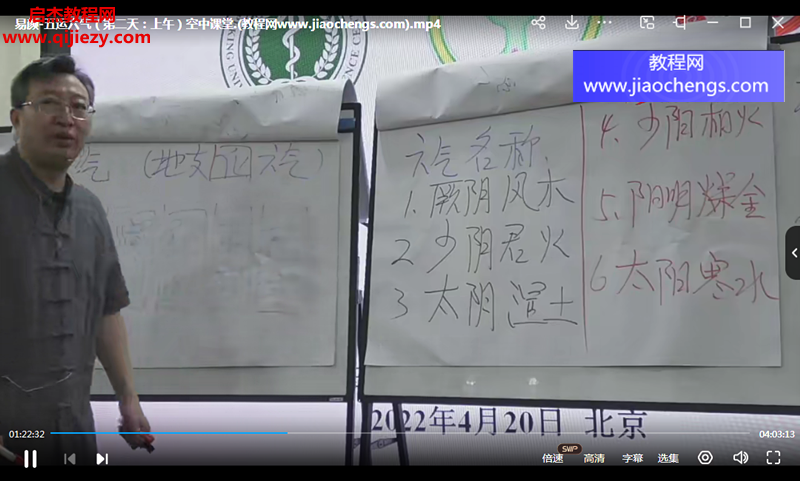 易颐-五运六气（第二天：上午）空中课堂.(教程网www.jiaochengs.com).mp4
启杰教程网
www.qijiezy.com
教程网
www.jiaochengs.com
气（地支 六气）
六气名称
1. 厥阴风木
2 少阴君火
3 太阴湿土
4. 少阳相火
5. 阳明燥金
6 太阳寒水
2022年4月20日 北京
01:22:32
04:03:13
倍速
SWP
高清
字幕
选集